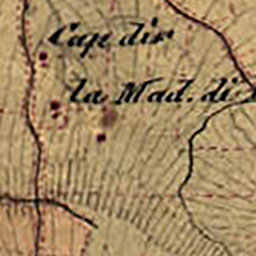 Cap dir
la Mad. di